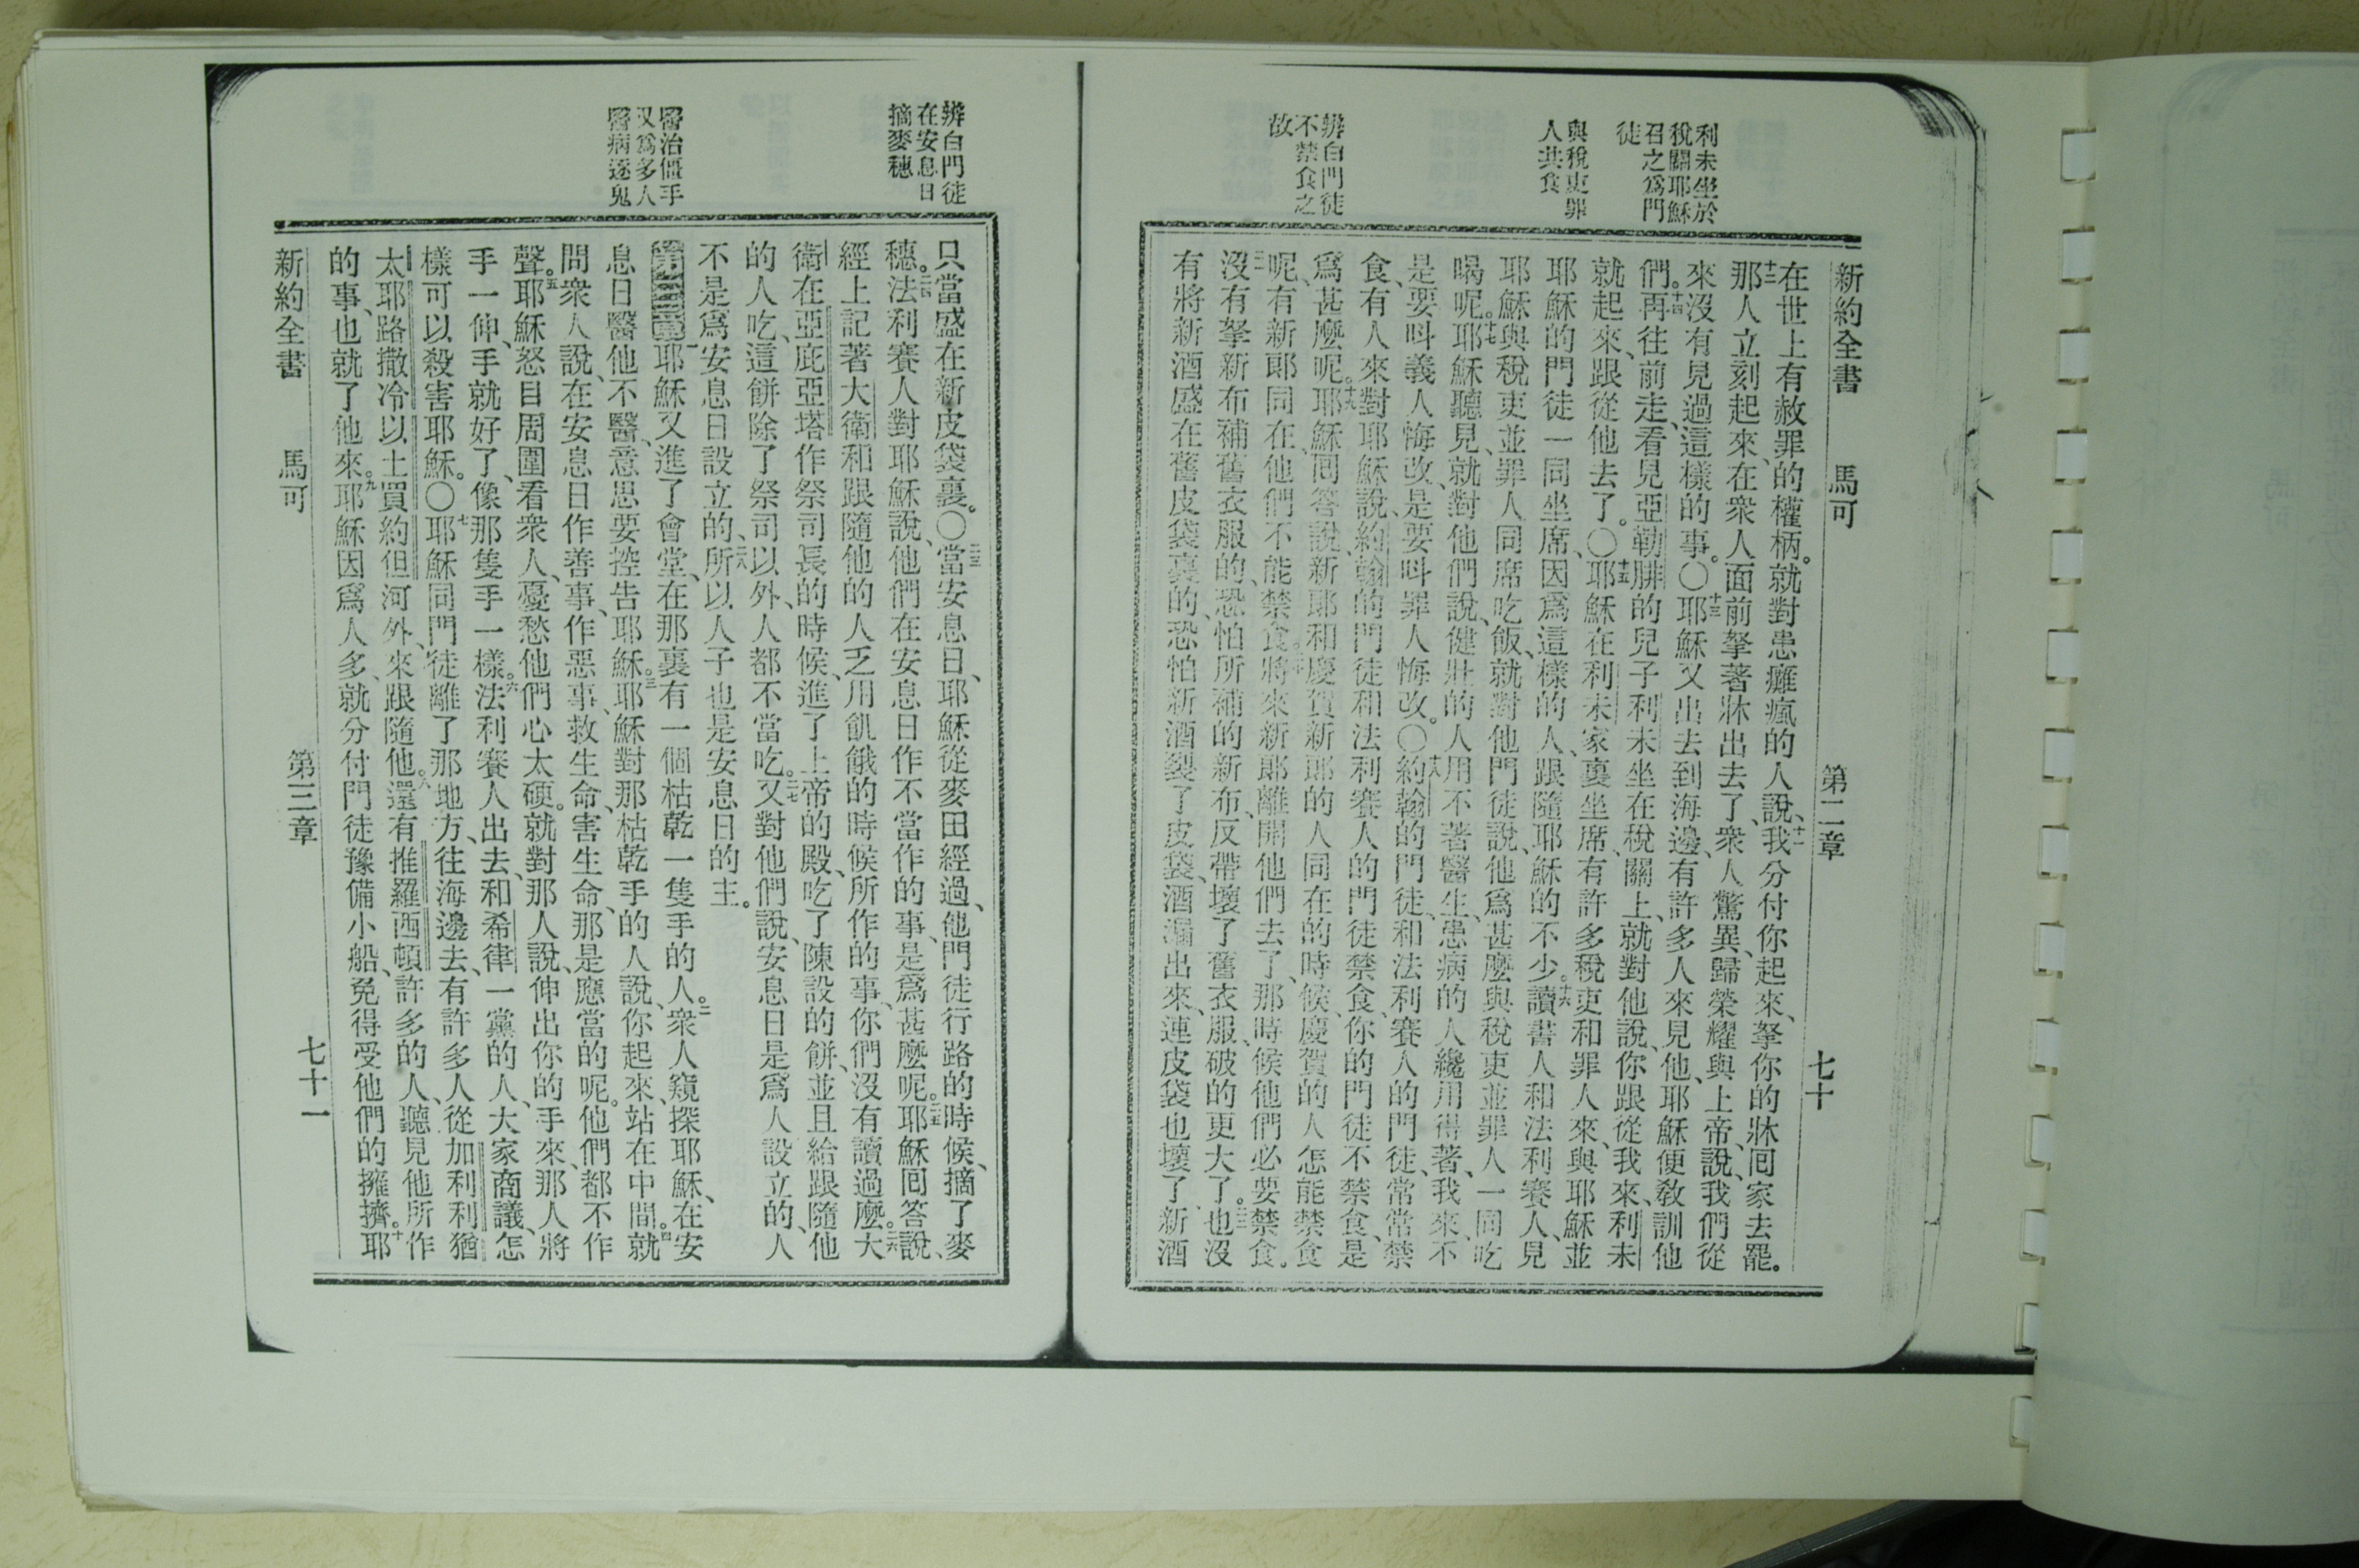 利未坐於
稅關耶穌
召之爲門
徒
與稅吏罪
人共食
辨白門徒
不禁食之
故
新約全書 馬可 第二章 七十
在世上有赦罪的權柄。就對患癱瘋的人說、十一我分付你起來、拏你的牀囘家去罷。
十二那人立刻起來、在衆人面前拏著牀出去了、衆人驚異、歸榮耀與上帝、說、我們從
來沒有見過這樣的事。〇十三耶穌又出去到海邊、有許多人來見他、耶穌便敎訓他
們。十四再往前走、看見亞勒腓的兒子利未坐在稅關上、就對他說、你跟從我來、利未
就起來、跟從他去了。〇十五耶穌在利未家裏坐席、有許多稅吏和罪人來、與耶穌並
耶穌的門徒一同坐席、因爲這樣的人、跟隨耶穌的不少。十六讀書人和法利賽人、見
耶穌與稅吏並罪人同席吃飯、就對他門徒說、他爲甚麼與稅吏並罪人一同吃
喝呢。十七耶穌聽見、就對他們說、健壯的人用不著醫生、患病的人纔用得著、我來不
是要呌義人悔改、是要呌罪人悔改。〇十八約翰的門徒、和法利賽人的門徒、常常禁
食、有人來對耶穌說、約翰的門徒和法利賽人的門徒禁食、你的門徒不禁食、是
爲甚麼呢。十九耶穌囘答說、新郎和慶賀新郎的人同在的時候、慶賀的人怎能禁食
呢、有新郎同在、他們不能禁食。二十將來新郎離開他們去了、那時候他們必要禁食。
二一沒有拏新布補舊衣服的、恐怕所補的新布、反帶壞了舊衣服、破的更大了。二二也沒
有將新酒盛在舊皮袋裏的、恐怕新酒裂了皮袋、酒漏出來、連皮袋也壞了、新酒
辨白門徒
在安息日
摘麥穗
醫治僵手
又爲多人
醫病逐鬼
只當盛在新皮袋裏。〇二三當安息日、耶穌從麥田經過、他門徒行路的時候、摘了麥
穗。二四法利賽人對耶穌說、他們在安息日作不當作的事、是爲甚麼呢。二五耶穌囘答說、
經上記著大衛和跟隨他的人乏用飢餓的時候所作的事、你們沒有讀過麼。二六大
衛在亞庇亞塔作祭司長的時候、進了上帝的殿、吃了陳設的餅、並且給跟隨他
的人吃、這餅除了祭司以外、人都不當吃。二七又對他們說、安息日是爲人設立的、人
不是爲安息日設立的、二八所以人子也是安息日的主。
第三章一耶穌又進了會堂、在那裏有一個枯乾一隻手的人。二衆人窺探耶穌、在安
息日醫他不醫、意思要控告耶穌。三耶穌對那枯乾手的人說、你起來、站在中間。四就
問衆人說、在安息日作善事、作惡事、救生命、害生命、那是應當的呢。他們都不作
聲。五耶穌怒目周圍看衆人、憂愁他們心太硬。就對那人說、伸出你的手來、那人將
手一伸、手就好了、像那隻手一樣。六法利賽人出去、和希律一黨的人、大家商議、怎
樣可以殺害耶穌。〇七耶穌同門徒離了那地方、往海邊去、有許多人從加利利猶
太耶路撒冷以土買約但河外、來跟隨他。八還有推羅西頓許多的人、聽見他所作
的事、也就了他來。九耶穌因爲人多、就分付門徒豫備小船、免得受他們的擁擠。十耶
新約全書 馬可 第三章 七十一